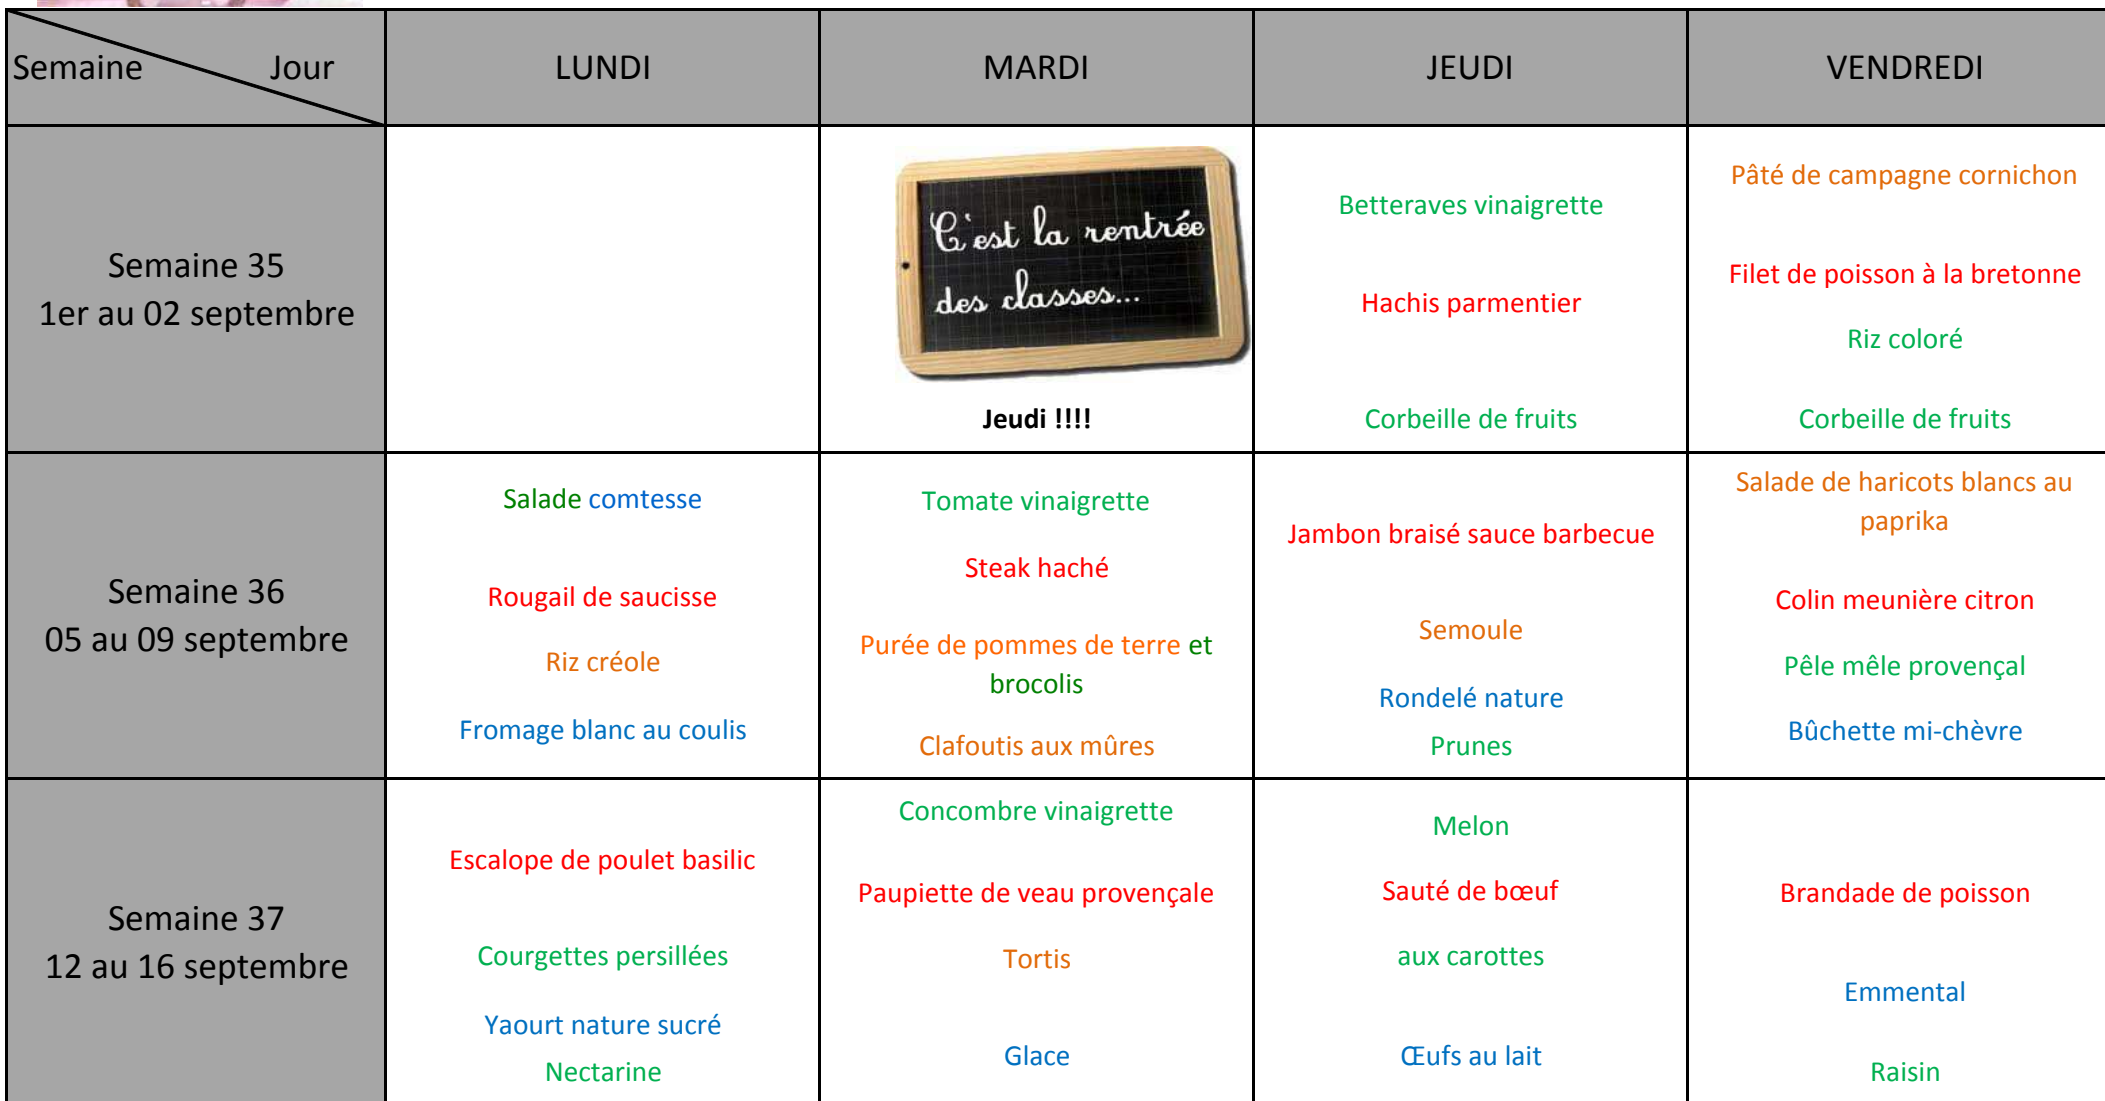 Semaine Jour
LUNDI
MARDI
JEUDI
VENDREDI
Semaine 35
1er au 02 septembre
C'est la rentrée
des classes...
Jeudi !!!!
Betteraves vinaigrette
Hachis parmentier
Corbeille de fruits
Pâté de campagne cornichon
Filet de poisson à la bretonne
Riz coloré
Corbeille de fruits
Semaine 36
05 au 09 septembre
Salade comtesse
Rougail de saucisse
Riz créole
Fromage blanc au coulis
Tomate vinaigrette
Steak haché
Purée de pommes de terre et
brocolis
Clafoutis aux mûres
Jambon braisé sauce barbecue
Semoule
Rondelé nature
Prunes
Salade de haricots blancs au
paprika
Colin meunière citron
Pêle mêle provençal
Bûchette mi-chèvre
Semaine 37
12 au 16 septembre
Escalope de poulet basilic
Courgettes persillées
Yaourt nature sucré
Nectarine
Concombre vinaigrette
Paupiette de veau provençale
Tortis
Glace
Melon
Sauté de bœuf
aux carottes
Œufs au lait
Brandade de poisson
Emmental
Raisin